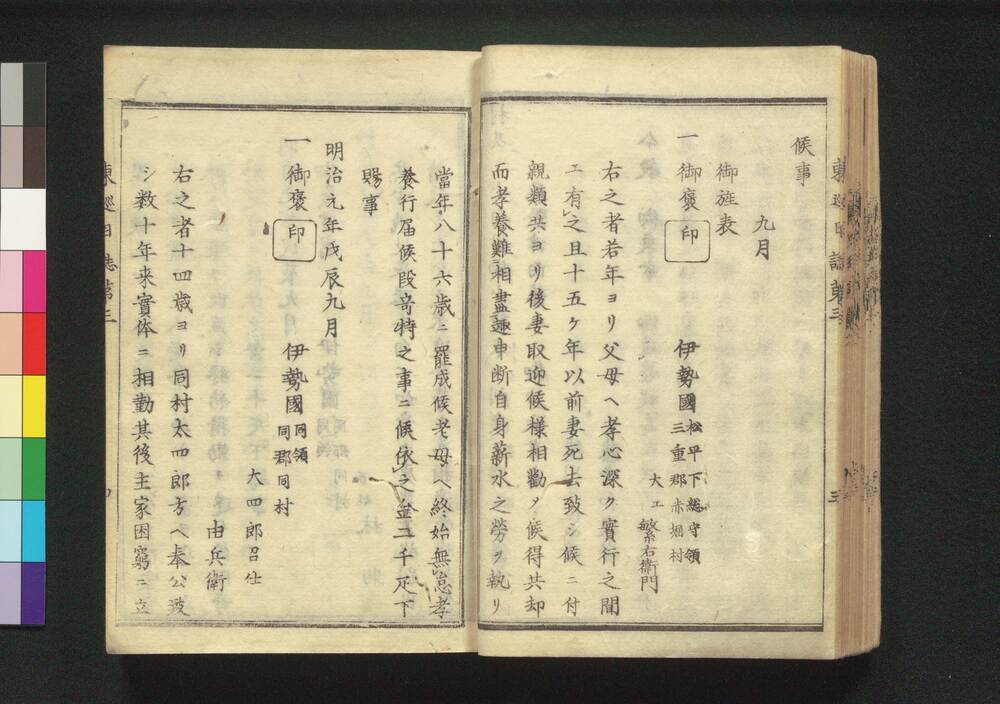 東巡日誌第三
三
候事
九月
御旌表
一 御褒 印
伊勢國 松平下総守領
三重郡赤堀村
大工 繁右衛門
右之者若年ヨリ父母ヘ孝心深ク實行之聞
エ有之且十五ケ年以前妻死去致シ候ニ付
親類共ヨリ後妻取迎候様相勸メ候得共却
而孝養難相盡趣申断自身薪水之勞ヲ執リ
當年八十六歳ニ罷成候老母ヘ終始無怠孝
養行届候段竒特之事ニ候依之金二千疋下
賜事
明治元年戊辰九月
一 御褒 印
伊勢國 同領
同郡同村
大四郎召仕
由兵衛
右之者十四歳ヨリ同村太四郎方ヘ奉公致
シ数十年来實体ニ相勤其後主家困窮ニ立
東巡日誌第三